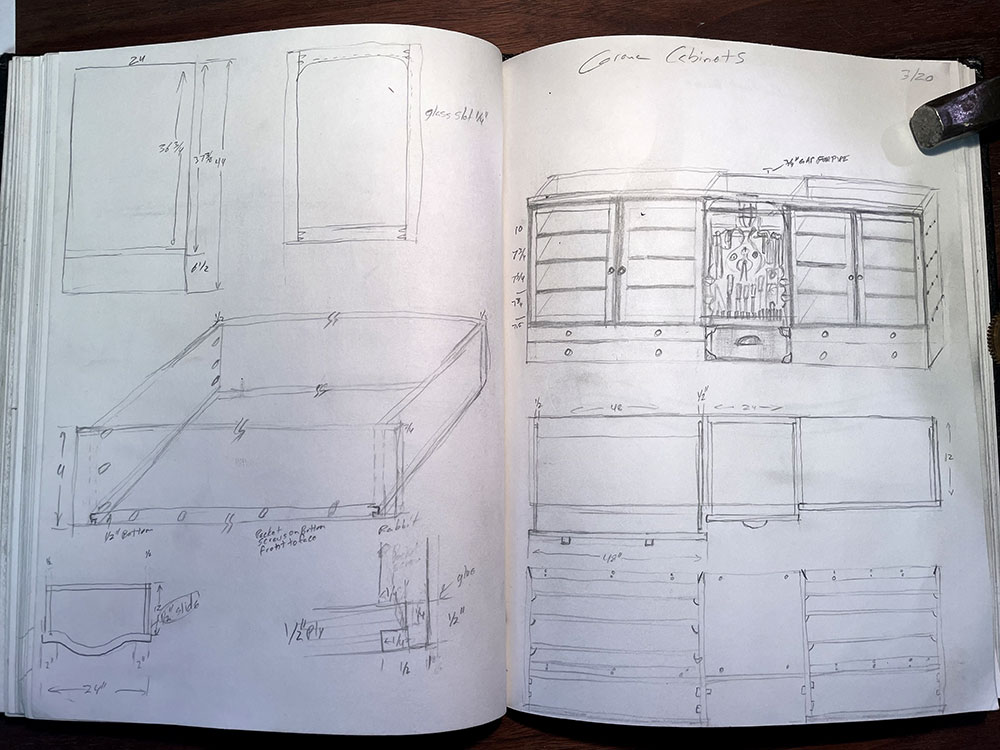 24
36 3/4
44
6 1/2
glass slot 1/4"
1/2
4
1/2" Bottom
Pocket
screws on Bottom
front to face
Rabbit
12
1/2" slide
2"
2"
24"
1/4
1/4
1/4
1/2"
1/2" ply
1/2
Cabinets
3/20
10
7 3/4
7 3/4
7 3/4
1/2
48
1/2"
24
12
48"